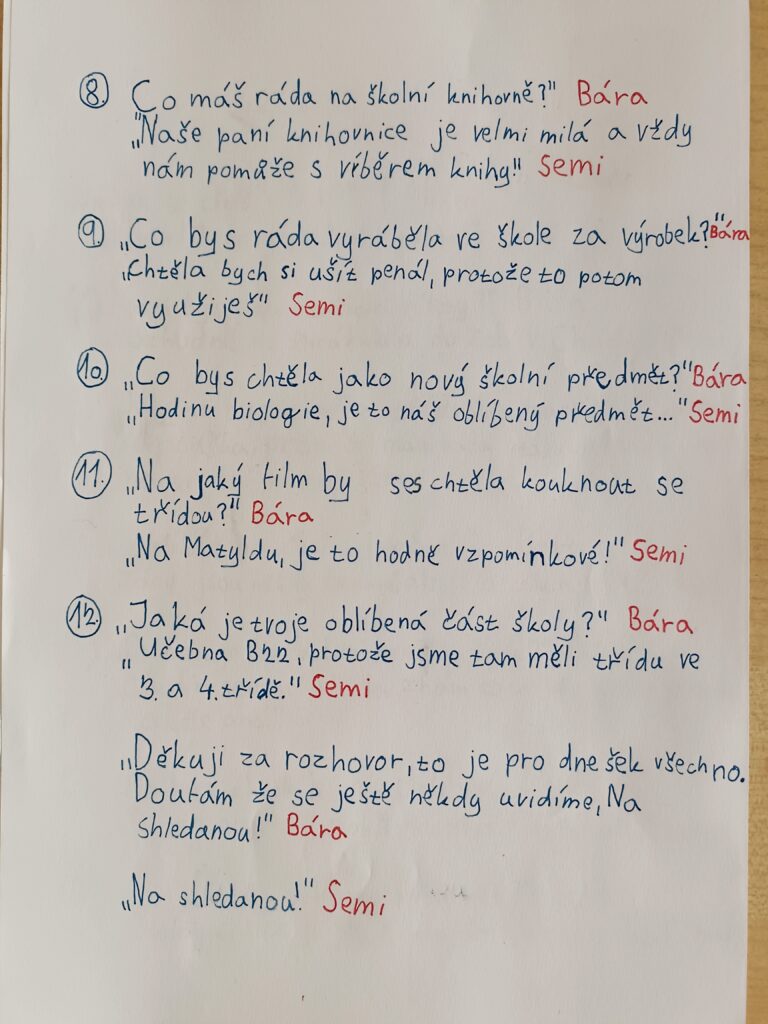 8. Co máš ráda na školní knihovně?" Bára
„Naše paní knihovnice je velmi milá a vždy
nám pomůže s výběrem knihy!" Semi
9. „Co bys ráda vyráběla ve škole za výrobek?" Bára
„Chtěla bych si ušít penál, protože to potom
využiješ" Semi
10. „Co bys chtěla jako nový školní předmět?" Bára
„Hodinu biologie, je to náš oblíbený předmět..." Semi
11. „Na jaký film by ses chtěla kouknout se
třídou?" Bára
„Na Matyldu, je to hodně vzpomínkové!" Semi
12. „Jaká je tvoje oblíbená část školy?" Bára
„Učebna B22, protože jsme tam měli třídu ve
3. a 4. třídě." Semi
„Děkuji za rozhovor, to je pro dnešek všechno.
Doufám že se ještě někdy uvidíme, Na
shledanou!" Bára
„Na shledanou!" Semi